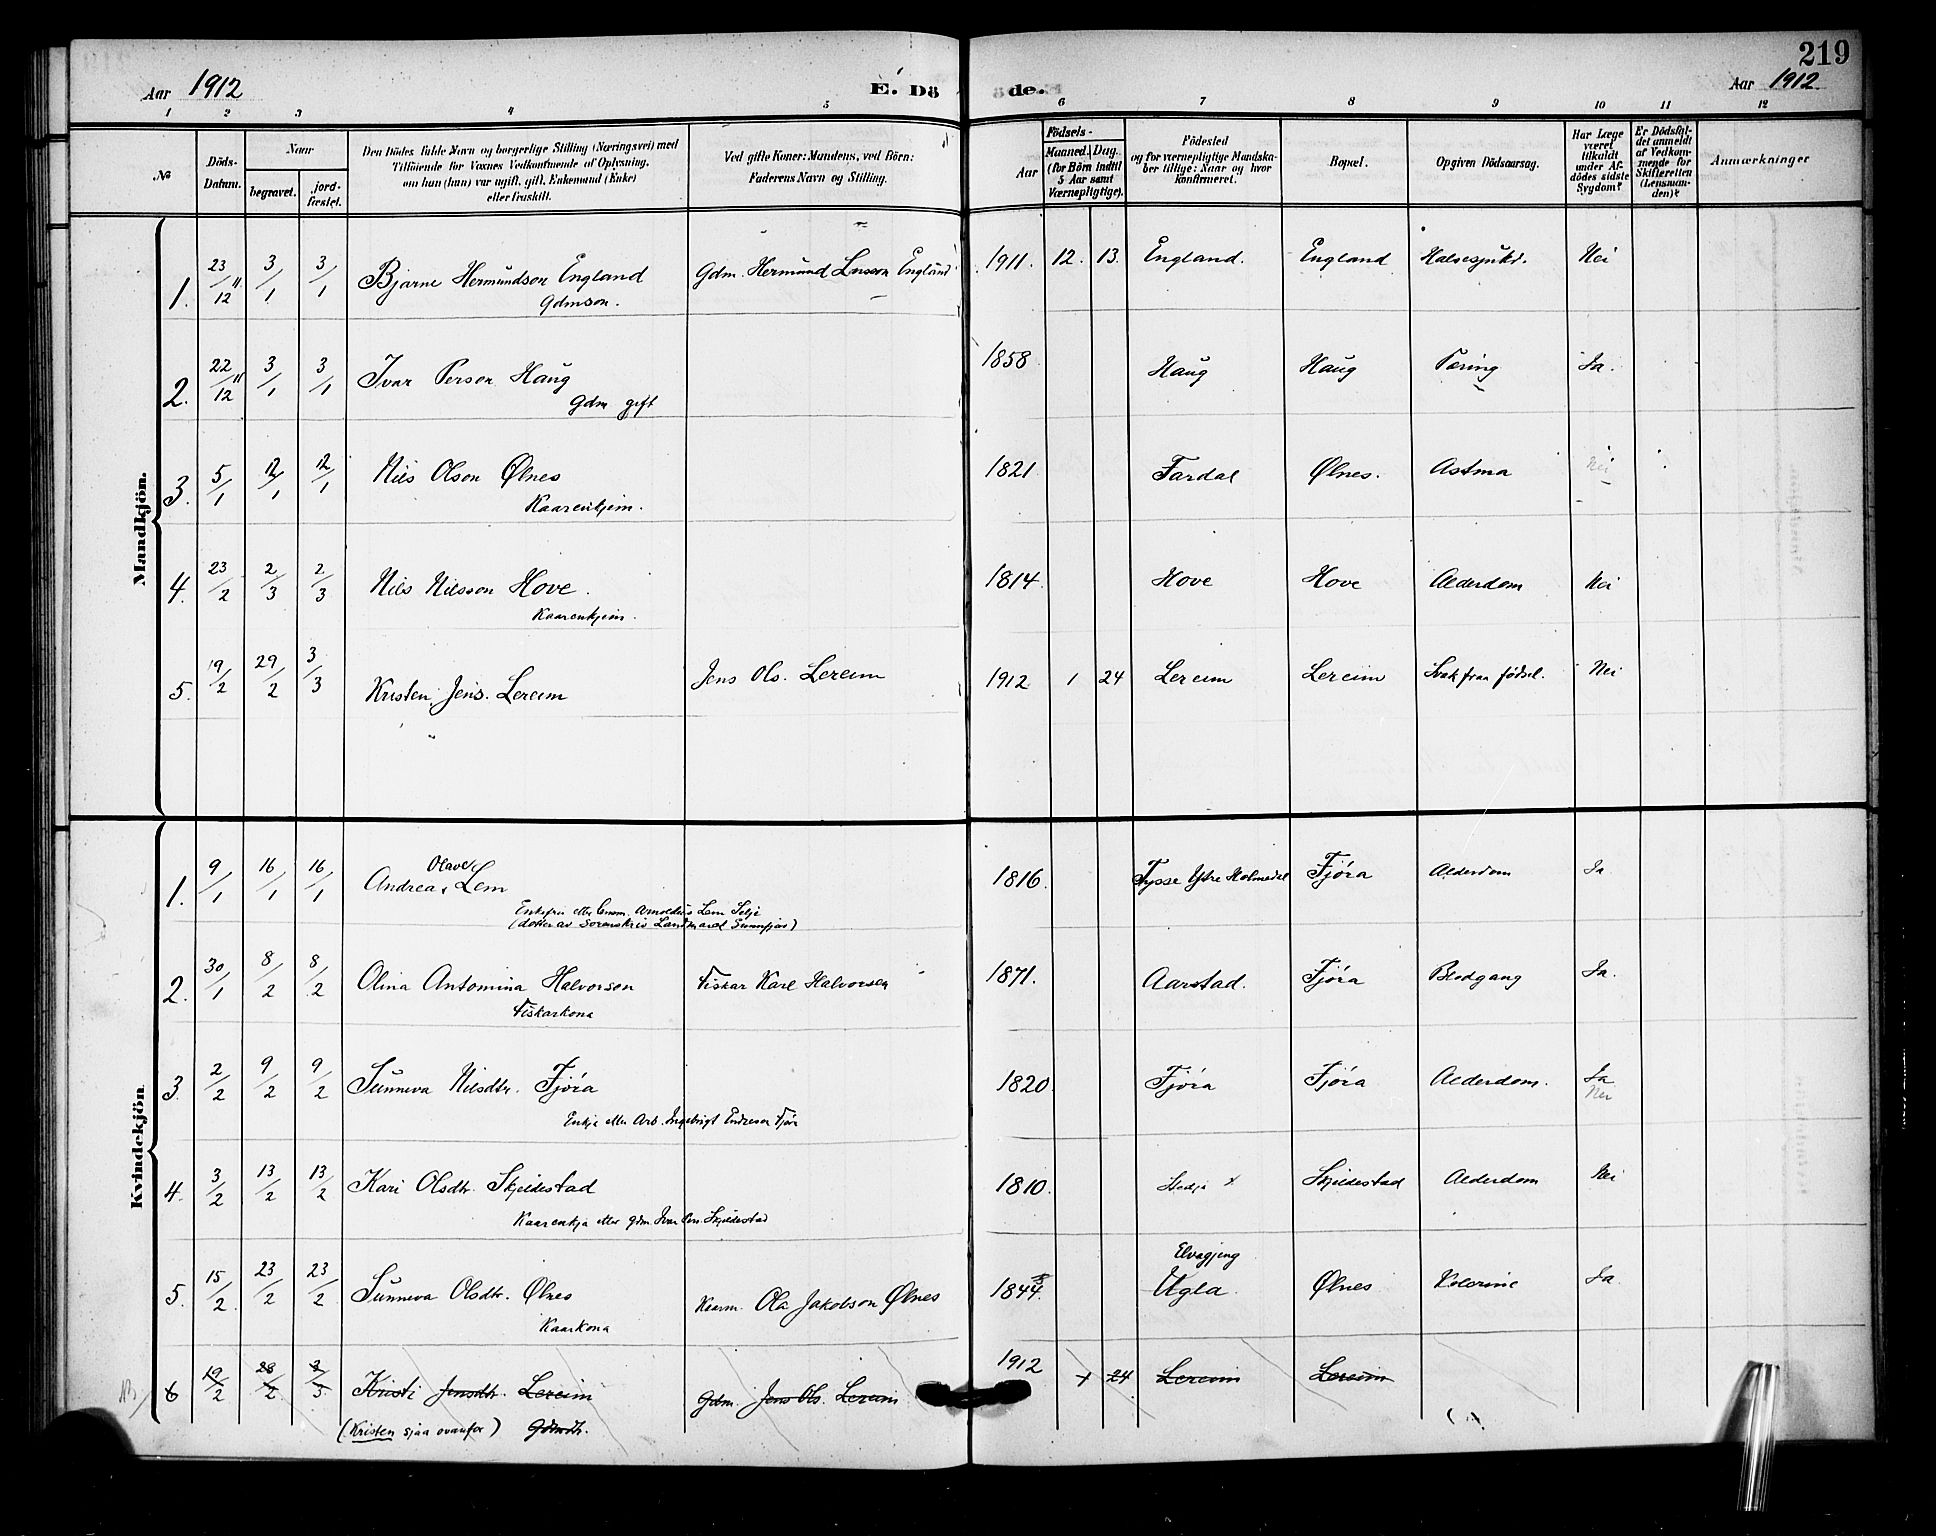 219
Aar 1912
E. Dö
de.
Aar 1912
1 2 3 4 5 6 7 8 9 10 11 12
№
Döds-
Datum.
Naar
begravet.
jord-
fæstet.
Den Dödes fulde Navn og borgerlige Stilling (Næringsvei) med
Tilföiende for Voxnes Vedkommende af Oplysning,
om han (hun) var ugift, gift, Enkemand (Enke)
eller fraskilt.
Ved gifte Koner: Mandens, ved Börn:
Faderens Navn og Stilling.
Födsels-
Aar
Maaned. Dag.
(for Börn indtil
5 Aar samt
Værnepligtige).
Födested
og for værnepligtige Mandska-
ber tillige: Naar og hvor
konfirmeret.
Bopæl.
Opgiven Dödsaarsag.
Har Læge
været
tilkaldt
under Af-
dödes sidste
Sygdom?
Er Dödsfal-
det anmeldt
af Vedkom-
mende for
Skifteretten
(Lensman-
den)?
Anmærkninger
Mandkjön.
1. 23/12 11 3/1 3/1 Bjarne Hermundson England Gdm. Hermund Larsson England 1911. 12. 13. England. England Halssjukd. Nei
Gdmson.
2. 22/12 11 3/1 3/1 Ivar Person Haug 1858 Haug Haug Tæring Ja.
Gdm gift
3. 5/1 12/1 12/1 Nils Olson Ølnes 1821 Fardal Ølnes. Astma Nei
Kaarenkjem.
4. 23/2 2/3 2/3 Nils Nilsson Hove. 1814 Hove Hove Alderdom Nei
Kaarenkjem.
5. 19/2 29/2 3/3 Kristen Jens. Lereim Jens Ols. Lereim 1912 1 24 Lereim Lereim Svak fraa fødsel. Nei
Kvindekjön
Olave
1. 9/1 16/1 16/1 Andrea Lem 1816. Tysse Ytre Holmedal Fjøra Alderdom Ja
Enkefru etter Arnoldus Lem Selje
(dotter av Sorenskriv Landmark Sunnfjor)
2. 30/1 8/2 8/2 Olina Antomina Halvorson Fiskar Karl Halvorsen 1871. Aarstad. Fjøra Blodgang Ja.
Fiskarkona
3. 2/2 9/2 9/2 Sunneva Nilsdtr. Fjøra 1820 Fjøra Fjøra Alderdom. Ja
Nei
Enkje etter Arb. Ingebrigt Endreson Fjøra
4. 3/2 13/2 13/2 Kari Olsdtr. Skjeldestad 1810. Stedje x Skjeldestad Alderdom Nei
Kaarenkja etter gdm. Ivar Pers. Skjeldestad
Elvagjeng
5. 15/2 23/2 23/2 Sunneva Olsdtr. Ølnes Kaarm. Ola Jakobson Ølnes 1844. Ugla. Ølnes Kolerine Ja
Kaarkona
6 19/2 29/2 3/3 Kristi Jensdtr. Lereim Gdm. Jens Ols. Lereim 1912 1 24 Lereim Lereim
(Kristen sjaa ovanfor) Gdmdtr.